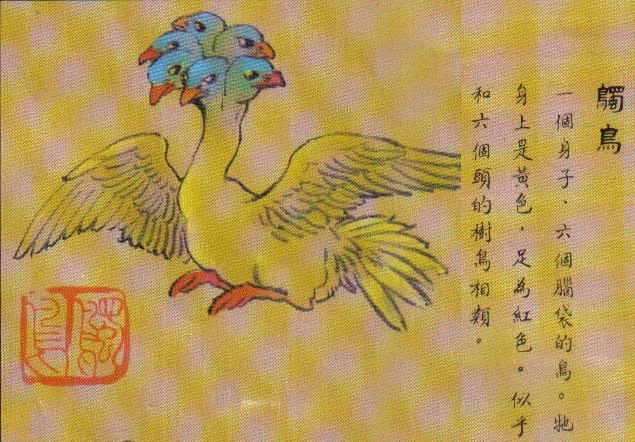 鸀鳥
一個身子、六個腦袋的鳥。牠
身上是黃色，足為紅色。似乎
和六個頭的樹鳥相類。